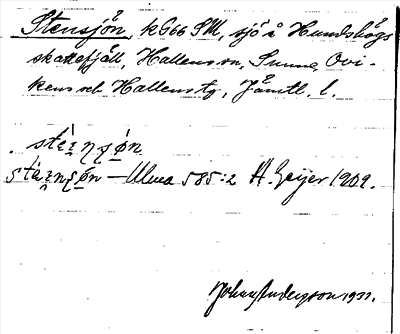 Stensjön, kG66 SM, sjö å Hundshögs
skattefjäll, Hallens sn, Sunne, Ovi-
kens och Hallens tg, Jämtl. l.
Ulma 585:2 A. Geijer 1909.
Johan Anderson 1931.